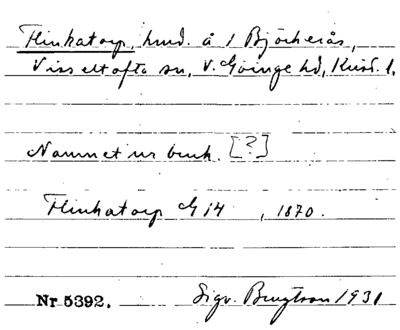 Flinkatorp, hmd. å 1 Björkerås,
Visseltofta sn, V. Göinge hd, Krist. l.
Namnet ur bruk. [?]
Flinkatorp G 14 , 1870.
Nr 5392. Sigv. Bengtson 1931